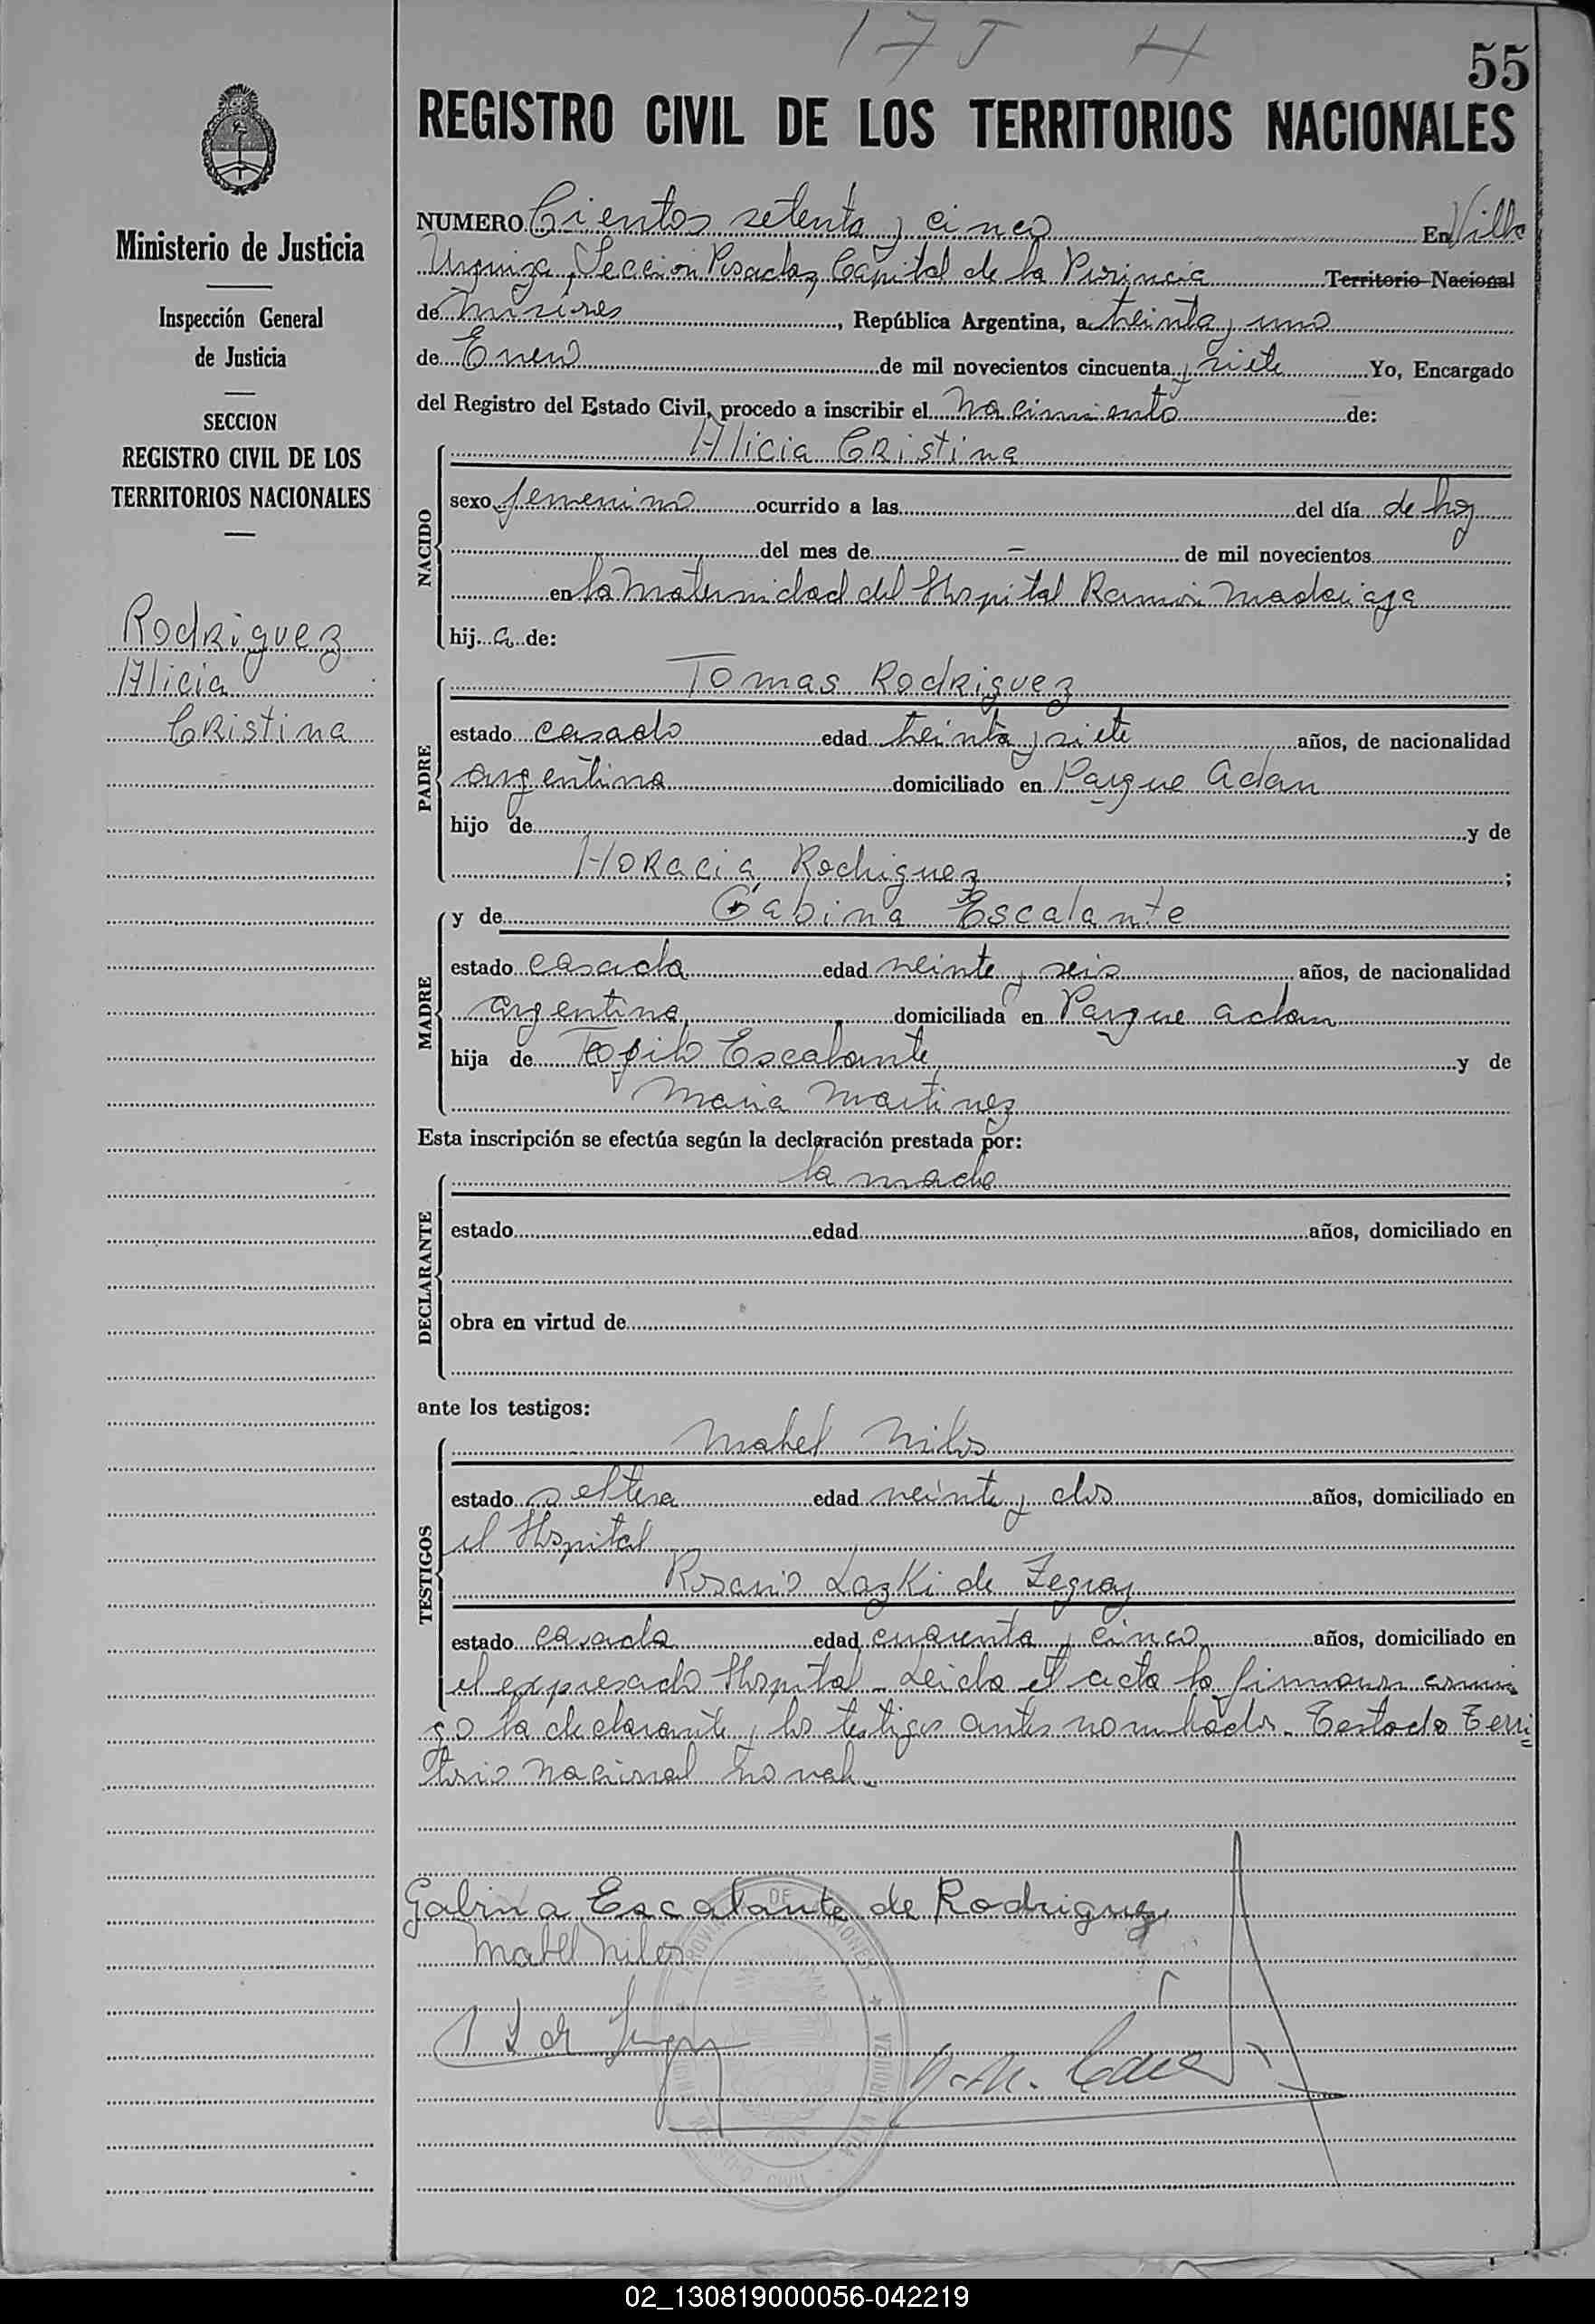 175 H
55
REGISTRO CIVIL DE LOS TERRITORIOS NACIONALES
Ministerio de Justicia
Inspección General
de Justicia
SECCION
REGISTRO CIVIL DE LOS
TERRITORIOS NACIONALES
Rodriguez
Alicia
Cristina
NUMERO Cientos setenta y cinco En Villa
Urquiza, Sección Posadas, Capital de la Provincia Territorio Nacional
de Misiones, República Argentina, a treinta y uno
de Enero de mil novecientos cincuenta y siete Yo, Encargado
del Registro del Estado Civil, procedo a inscribir el nacimiento de:
NACIDO
Alicia Cristina
sexo femenino ocurrido a las del día de hoy
del mes de – de mil novecientos
en la Maternidad del Hospital Ramón Madariaga
hij a de:
PADRE
Tomas Rodriguez
estado casado edad treinta y siete años, de nacionalidad
argentina domiciliado en Parque Adan
hijo de y de
Horacia Rodriguez ;
MADRE
y de Gabina Escalante
estado casada edad veinte y seis años, de nacionalidad
argentina domiciliada en Parque Adan
hija de Teofilo Escalante y de
Maria Martinez
Esta inscripción se efectúa según la declaración prestada por:
DECLARANTE
la madre
estado edad años, domiciliado en
obra en virtud de
ante los testigos:
TESTIGOS
Mabel Nilos
estado soltera edad veinte y dos años, domiciliado en
el Hospital
Rosario Lazki de
estado casada edad cuarenta y cinco años, domiciliado en
el expresado Hospital. Leida el acta la firmaron conmi
go la declarante y los testigos antes nombrados. Testado Terri=
torio Nacional no vale
Gabina Escalante de Rodriguez
Mabel Nilos
PROVINCIA DE MISIONES
VILLA URQUIZA
REGISTRO CIVIL
02_130819000056-042219